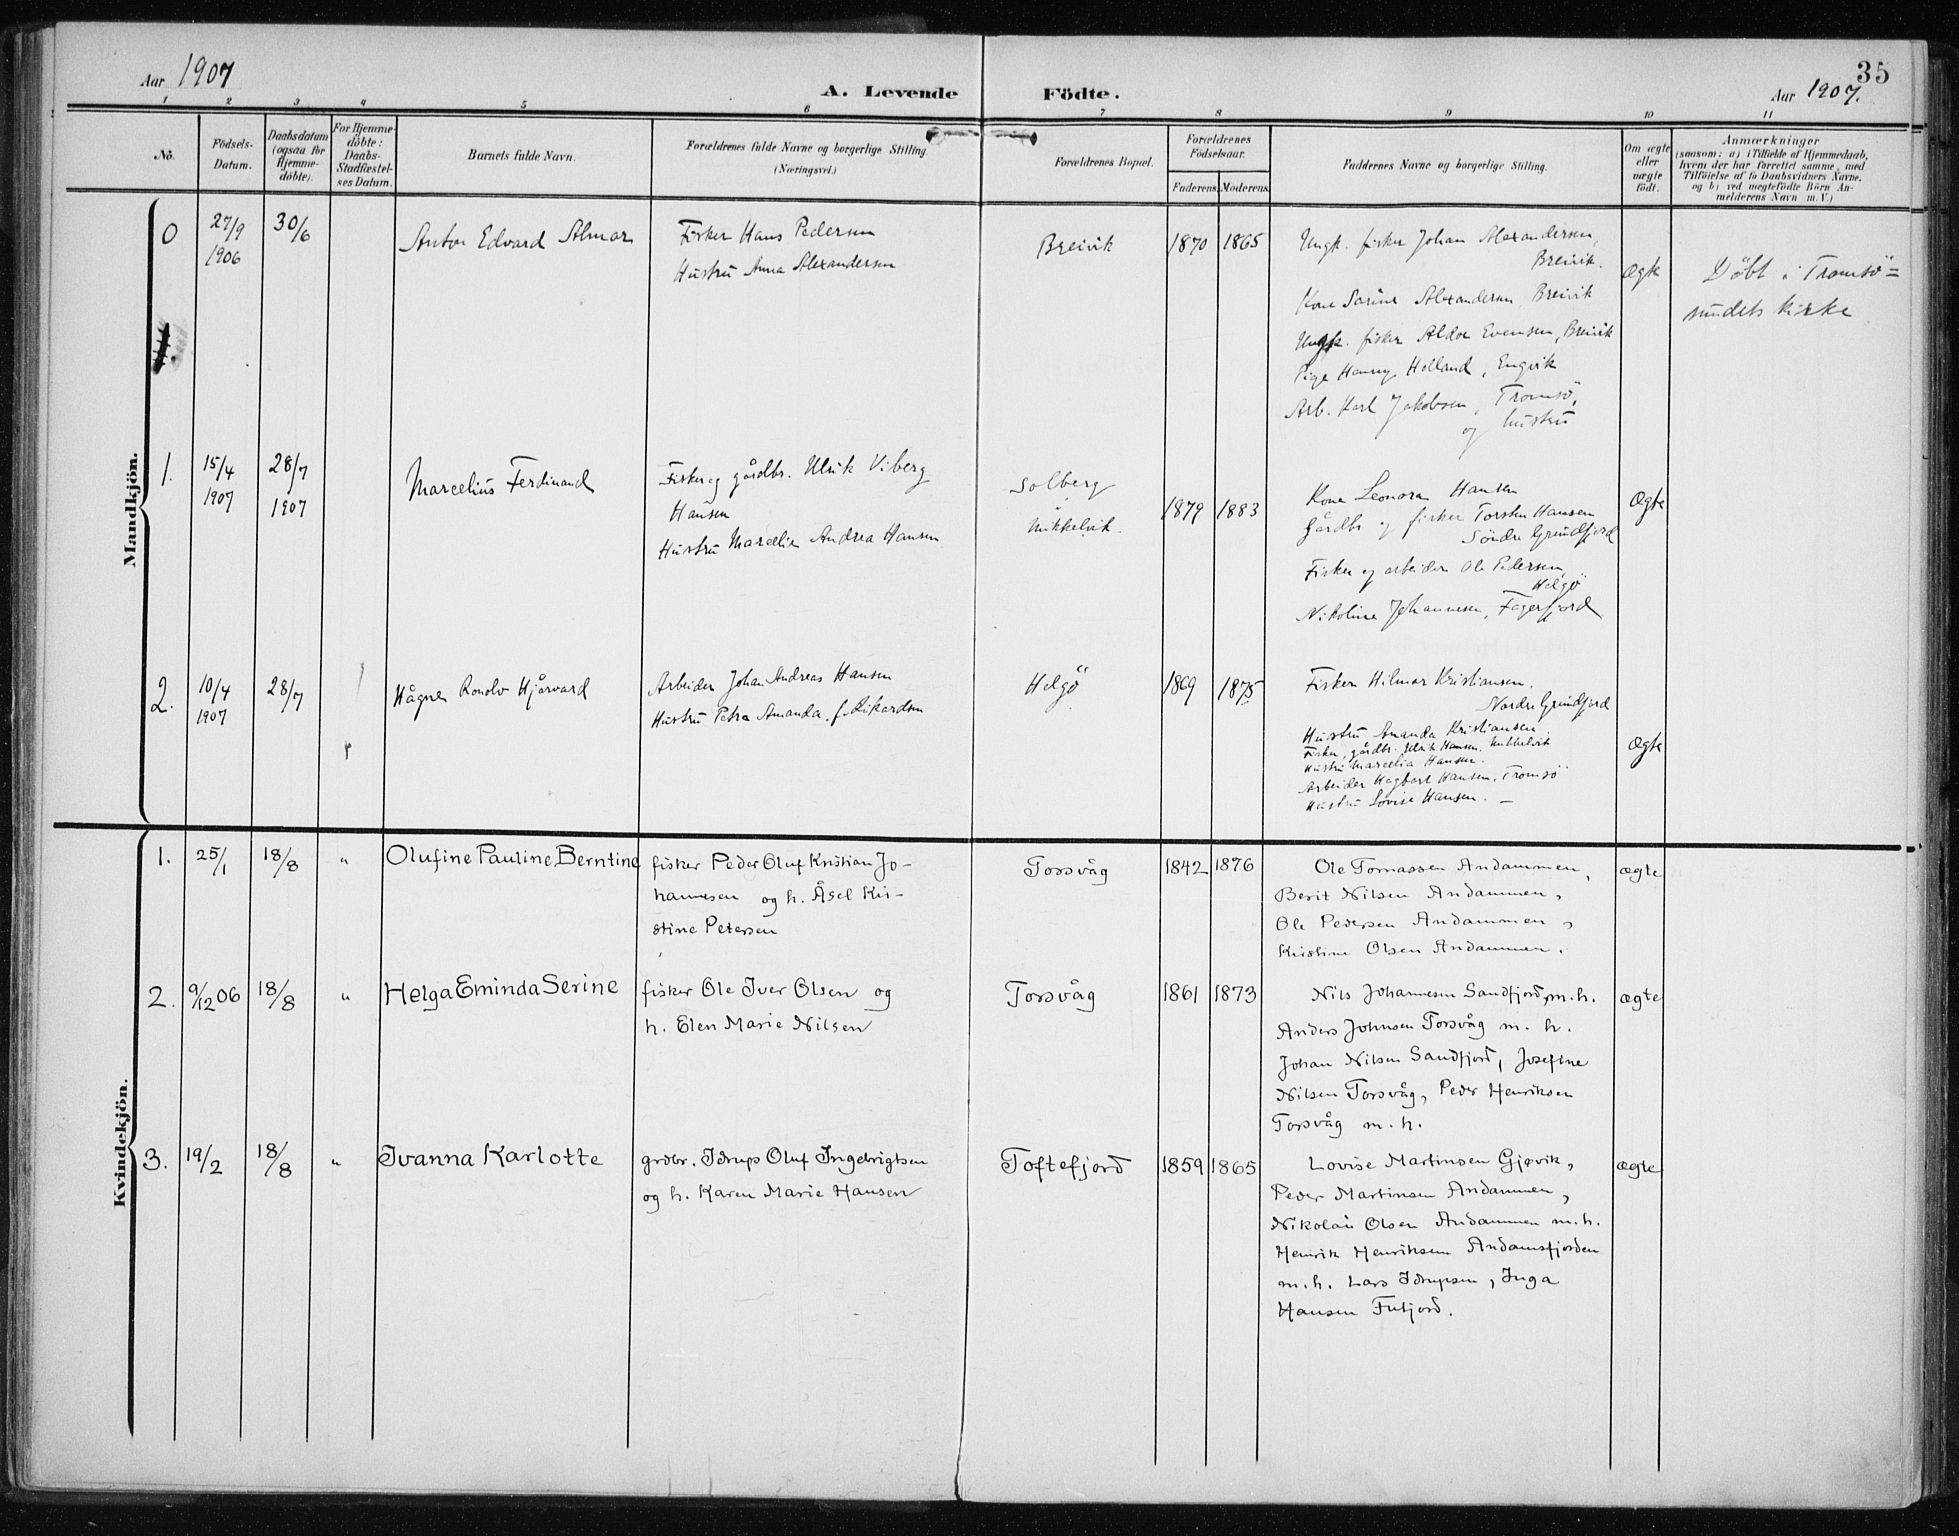 Aar 1907
A. Levende Födte.
35
Aar 1907.
1 2 3 4 5 6 7 8 9 10 11
No.
Födsels-Datum.
Daabsdatum (ogsaa for Hjemme-döbte).
For Hjemme-döbte: Daabs-Stadfæstel-ses Datum.
Barnets fulde Navn.
Forældrenes fulde Navne og borgerlige Stilling.
(Næringsvei.)
Forældrenes Bopæl.
Forældrenes Födselsaar.
Faderens. Moderens.
Faddernes Navne og borgerlige Stilling.
Om ægte eller uægte født.
Anmærkninger
(saasom: a) i Tilfælde af Hjemmedaab,
hvem der har forrettet samme, med
Tilföielse af to Daabsvidners Navne.
og b) ved uægtefödte Börn An-
melderens Navn m. V.)
Mandkjön.
0
27/9 1906
30/6
Anton Edvard Almar
Fisker Hans Pedersen
Hustru Anna Alexandersen
Breivik
1870 1865
Ungk. fisker Johan Alexandersen,
Breivik.
Kone Sarine Alexandersen Breivik
Ungk. fisker Aldor Evensen, Breivik
Pige Henny Holland, Engvik
Arb. Karl Jakobsen, Tromsö,
og hustru
Ægte
Döbt i Tromsö=
sundets kirke
1.
15/4 1907
28/7 1907
Marcelius Ferdinand
Fisker og gårdbr. Ulrik Viberg
Hansen
Hustru Marcelie Andrea Hansen
Solberg
Mikkelvik.
1879 1883
Kone Leonora Hansen
Gårdbr og fisker Torsten Hansen
Söndre Grundfjord
Fisker og arbeider Ole Pedersen,
Helgö
Nikoline Johannesen, Fagerfjord
Ægte
2.
10/4 1907
28/7
Hågne Ronolv Hjørvard
Arbeider Johan Andreas Hansen
Hustru Petra Amanda f. Rikardsen
Helgö
1869 1875
Fisker Hilmar Kristiansen.
Nordre Grundfjord
Hustru Amanda Kristiansen
Fisker, gårdbr. Ulrik Hansen, Mikkelvik
Hustru Marcelia Hansen.
Arbeider Hagbart Hansen, Tromsö
Hustru Lovise Hansen. —
Ægte
Kvindekjön.
1. 25/1 18/8 "
Olufine Pauline Berntine
fisker Peder Oluf Kristian Jo-
hannesen og h. Åsel Kri-
stine Petersen
Torsvåg
1842 1876
Ole Tomassen Andammen,
Berit Nilsen Andammen,
Ole Pedersen Andammen,
Kristine Olsen Andammen.
ægte
2. 9/12 06 18/8 "
Helga Eminda Serine
fisker Ole Iver Olsen og
h. Elen Marie Nilsen
Torsvåg
1861 1873
Nils Johannesen Sandfjord, m.h.
Anders Johnsen Torsvåg m. h.
Johan Nilsen Sandfjord, Josefine
Nilsen Torsvåg, Peder Henriksen
Torsvåg m. h.
ægte
3. 19/2 18/8 "
Ivanna Karlotte
grdbr. Idrup Oluf Ingebrigtsen
og h. Karen Marie Hansen
Toftefjord
1859 1865
Lovise Martinsen Gjøvik,
Peder Martinsen Andammen,
Nikolai Olsen Andammen m.h.
Henrik Henriksen Andamsfjorden
m.h. Lars Idrupsen, Inga
Hansen
ægte